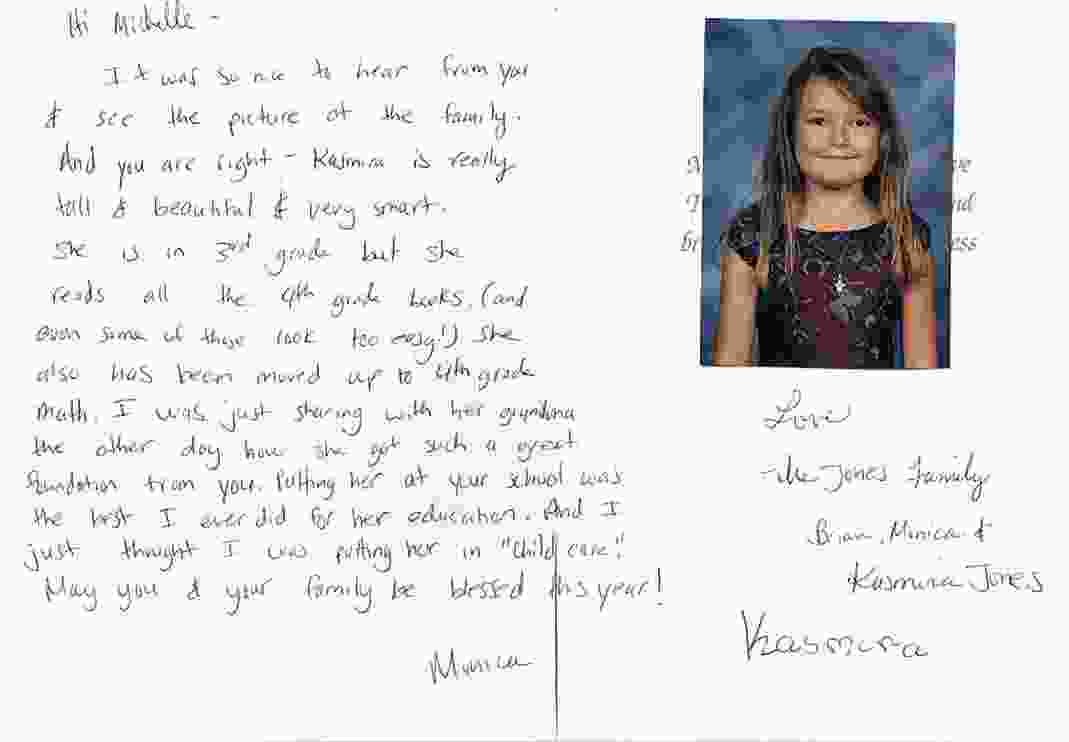 Hi Michelle -
It was so nice to hear from you
& see the picture of the family.
And you are right - Kasmira is really
tall & beautiful & very smart.
She is in 3rd grade but she
reads all the 4th grade books, (and
even some of those look too easy!) She
also has been moved up to 4th grade
math. I was just sharing with her grandma
the other day how she got such a great
foundation from you. Putting her at your school was
the best I ever did for her education. And I
just thought I was putting her in "child care".
May you & your family be blessed this year!
Monica
ve
nd
ess
Love
The Jones Family
Brian, Monica &
Kasmira Jones
Kasmira